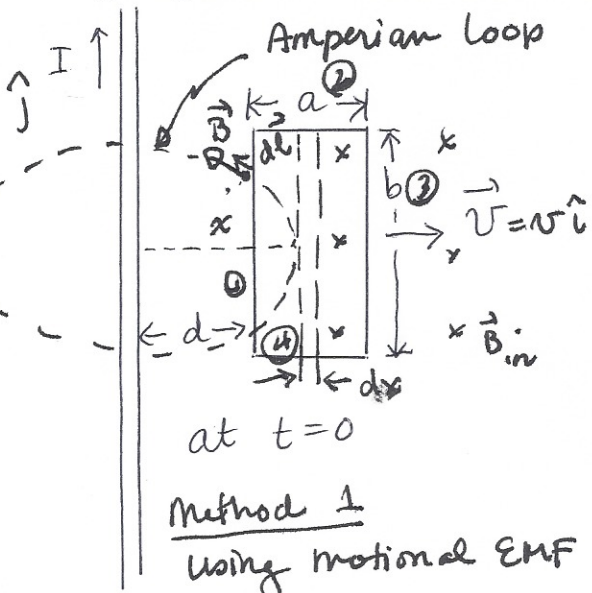 Amperian Loop
I
ĵ
a ②
B⃗
dl⃗
x
x
b ③
x
x
x
V⃗ = v î
x
①
d
④
x
x B⃗ in
dx
at t=0
Method 1
using motional EMF